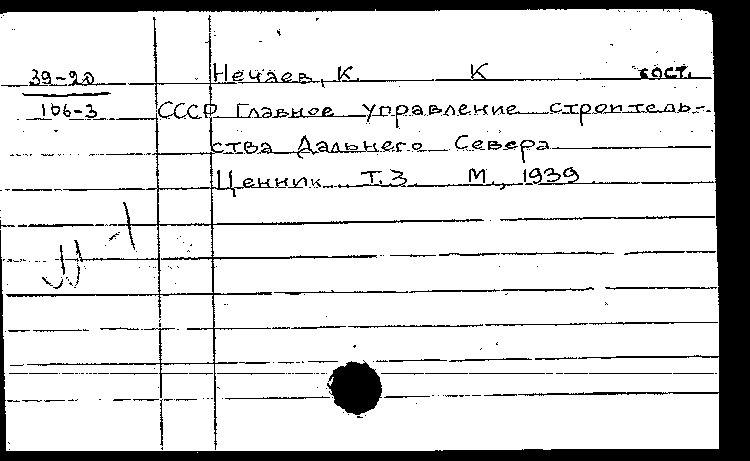 39-20 Нечаев, К. К сост.
106-3 СССР Главное управление строитель-
ства Дальнего Севера
Ценник. Т.3. М., 1939